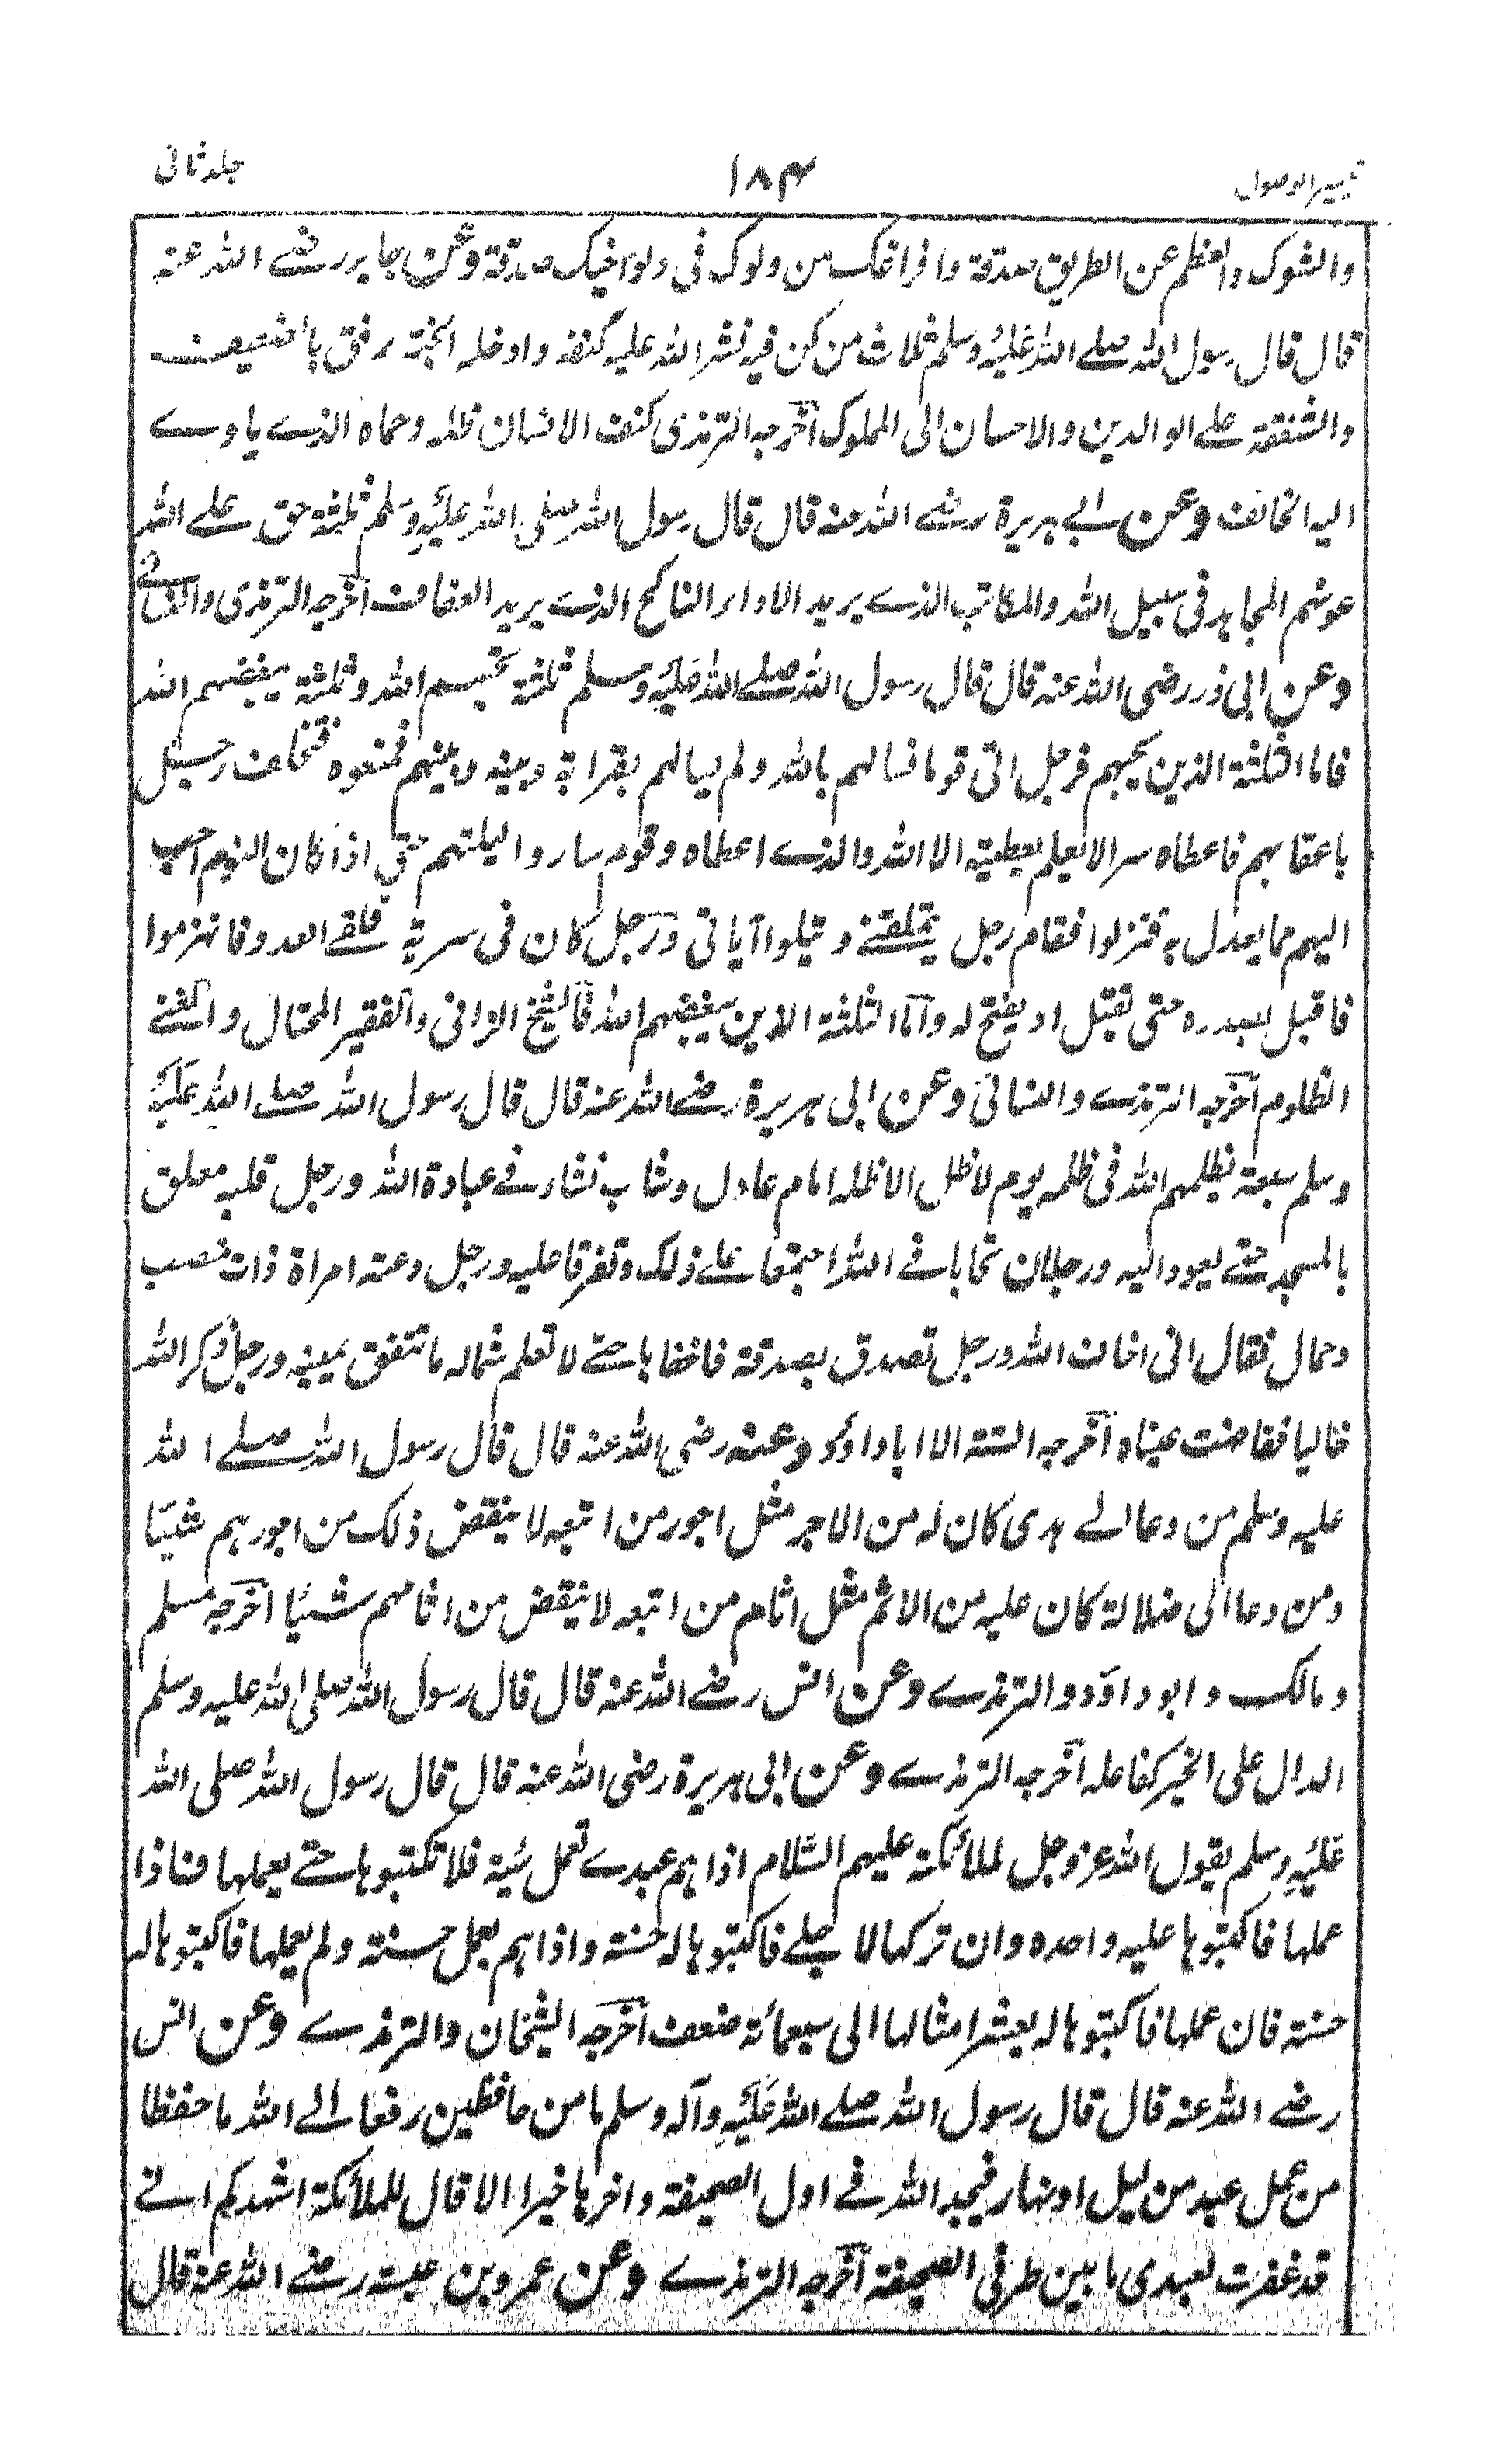 تيسير الوصول ١٨٤ جلد ثاني
والشوك والعظم عن الطريق صدقة وافراغك من دلوك في دلو اخيك صدقة وعن جابر رضے الله عنه
قال قال رسول الله صلے الله عليه وسلم ثلاث من كن فيه نشر الله عليه كنفه وادخله الجنة رفق بالضعيف
والشفقة علے الوالدين والاحسان الى المملوك اخرجه الترمذى كنف الانسان ظله وحماه الذے ياوے
اليه الخائف وعن ابے هريرة رضے الله عنه قال قال رسول الله صلى الله عليه وسلم ثلثة حق علے الله
عونهم المجاهد فى سبيل الله والمكاتب الذے يريد الاداء الناكح الذے يريد العفاف اخرجه الترمذى والنسائے
وعن ابى ذر رضى الله عنه قال قال رسول الله صلے الله عليه وسلم ثلثة يحبهم الله وثلثة يبغضهم الله
فاما الثلثة الذين يحبهم فرجل اتى قوما فسالهم بالله ولم يسالهم بقرابة بينه وبينهم فمنعوه فتخلف رجل
باعقابهم فاعطاه سرا لا يعلم بعطيته الا الله والذے اعطاه وقوم ساروا ليلتهم حتى اذا كان النوم احب
اليهم مما يعدل به فنزلوا فقام رجل يتملقنے ويتلوا آياتى ورجل كان فى سرية فلقے العدو فانهزموا
فاقبل بصدره حتى يقتل او يفتح له واما الثلثة الذين يبغضهم الله فالشيخ الزانى والفقير المختال والغنے
الظلوم اخرجه الترمذے والنسائى وعن ابى هريرة رضے الله عنه قال قال رسول الله صلے الله عليه
وسلم سبعة يظلهم الله فى ظله يوم لا ظل الا ظله امام عادل وشاب نشاء فے عبادة الله ورجل قلبه معلق
بالمسجد حتے يعود اليه ورجلان تحابا فے الله اجتمعا علے ذلك وتفرقا عليه ورجل دعته امراة ذات منصب
وجمال فقال انى اخاف الله ورجل تصدق بصدقة فاخفاها حتے لا تعلم شماله ما تنفق يمينه ورجل ذكر الله
خاليا ففاضت عيناه اخرجه الستة الا ابا داود وعنه رضى الله عنه قال قال رسول الله صلے الله
عليه وسلم من دعا الے هدى كان له من الاجر مثل اجور من اتبعه لا ينقص ذلك من اجورهم شيئا
ومن دعا الى ضلالة كان عليه من الاثم مثل اثام من اتبعه لا ينقص من اثامهم شيئا اخرجه مسلم
ومالك وابو داود والترمذے وعن انس رضے الله عنه قال قال رسول الله صلى الله عليه وسلم
الدال على الخير كفاعله اخرجه الترمذے وعن ابى هريرة رضى الله عنه قال قال رسول الله صلى الله
عليه وسلم يقول الله عز وجل لملائكته عليهم السلام اذا هم عبدے تعمل سيئة فلا تكتبوها حتے يعملها فاذا
عملها فاكتبوها عليه واحده وان تركها لاجلے فاكتبوها له حسنة واذا هم بعمل حسنة ولم يعملها فاكتبوها له
حسنة فان عملها فاكتبوها له بعشر امثالها الى سبعمائة ضعف اخرجه الشيخان والترمذے وعن انس
رضے الله عنه قال قال رسول الله صلے الله عليه وآله وسلم ما من حافظين رفعا الے الله ما حفظا
من عمل عبد من ليل او نهار فيجد الله فے اول الصحيفة واخرها خيرا الا قال للملائكة اشهدكم انے
قد غفرت لعبدى ما بين طرفى الصحيفة اخرجه الترمذے وعن عمرو بن عبسة رضے الله عنه قال